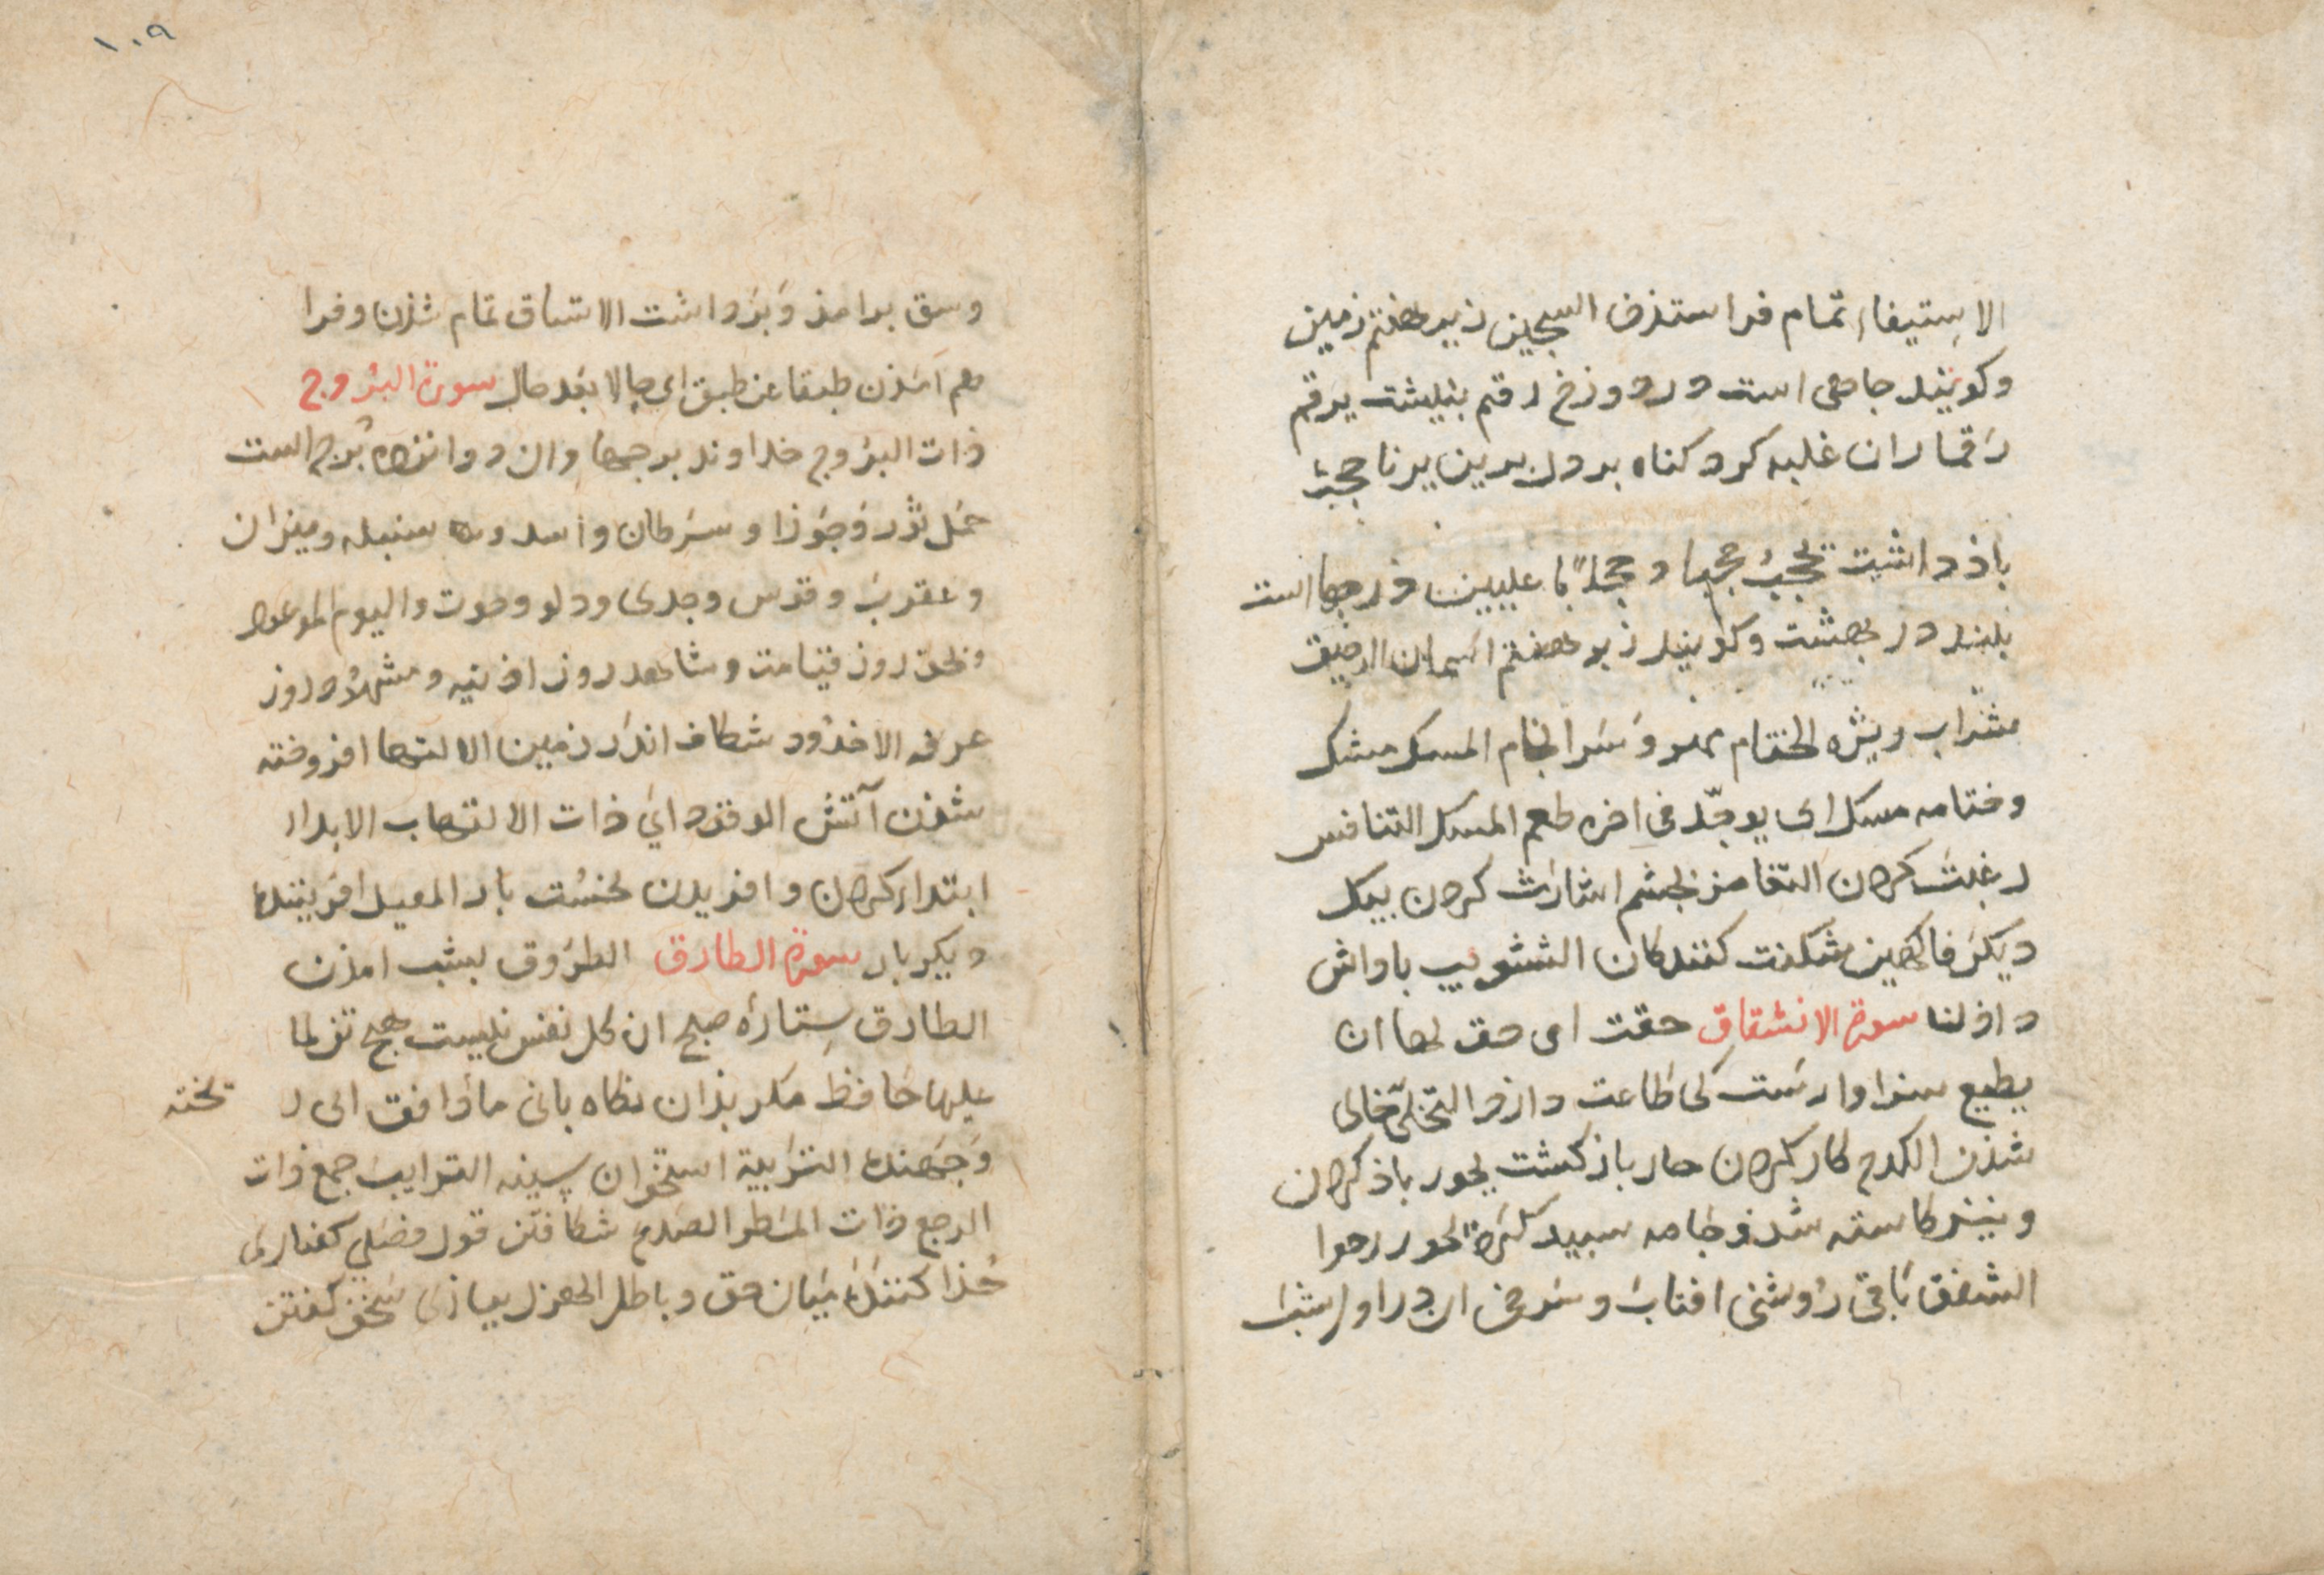 الاستيفاء تمام فرا ستذن السجين زير هفتم زمين
وكويند جاهى است در دوزخ رقم بنبشت يرقم
رقما ران غلبه كرد كناه بر دل يرين يرنا حجبت
باذ داشت تحجب حجبا و عليين درجها است
بلند در بهشت وكويند زبر هفتم اسمان الرحيق
شراب ويژه الختام مهر و سرانجام المسك مشك
وختامه مسك اى يوجد فى اخره طعم المسك التنافس
رغبت كردن التغامز بچشم اشارت كردن بيك
ديكر فاكهين شكفت كنندكان التثويب پاداش
داذن سورة الانشقاق حقت اى حق لها ان
يطيع سزاوارست كى طاعت دارد التخلى خالى
شذن الكدح كار كردن حار باز كشت يحور باز كردن
و نيز كاسته شذ و جامه سپيد كرد
الشفق باقى روشنى افتاب و سرخى ان در اول شب
١٠٩
وسق برامذ و برداشت الاتساق تمام شذن وفرا
هم امذن طبقا عن طبق اى حالا بعد حال سورة البروج
ذات البروج خداوند برجها وان دوانزده برج است
حمل ثور و جوزا و سرطان و اسد و سنبله وميزان
و عقرب و قوس و جدى ودلو وحوت واليوم الموعود
روز قيامت و شاهد روز اذينه و مشهود روز
عرفه الاخدود شكاف اندر زمين الالتها افروخته
شذن آتش الوقود اي ذات الالتهاب الابداء
ابتداء كردن و افريدن نخست بار المعيد افريننده
ديكر بار سورة الطارق الطروق بشب امذن
الطارق ستاره صبح ان كل نفس نيست هيچ تن لما
عليها حافظ مكر بذان نكاه بانى ما دافق اى ر يخته
و جهنده التريبة استخوان سينه الترايب جمع ذات
الرجع ذات المطر الصدع شكافتن قول فصل كفتارى
جذا كننده ميان حق و باطل الهزل ببازى سخن كفتن